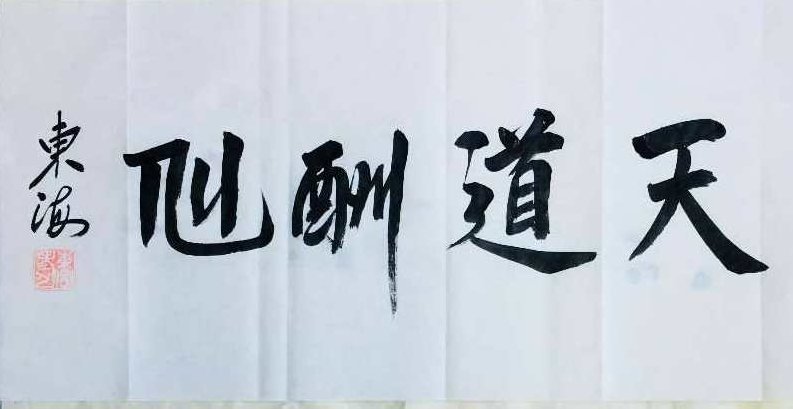 天道酬
東海